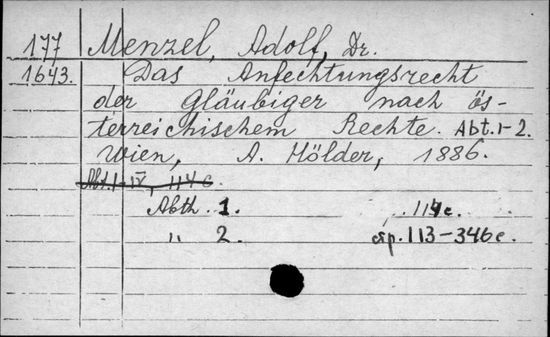 177 Menzel, Adolf, Dr.
1643. Das Anfechtungsrecht
der Gläubiger nach ös-
terreichischem Rechte. Abt. 1-2.
Wien, A. Hölder, 1886.
Abt. I-IV, 114 c.
Abth. 1. 114 c.
" 2. стр. 113-346 c.